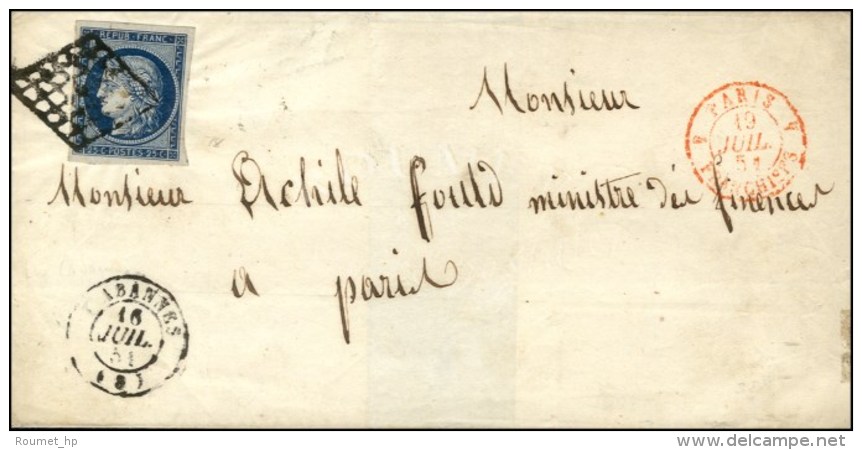 REPUB. FRANC.
25 C. POSTES 25 C.
Monsieur
PARIS
19
JUIL.
51
FRANCHISES
Monsieur Achile fould ministre des finences
a paris
CABANNES
16
JUIL.
51
(8)
Roumet_hp
www.delcampe.net